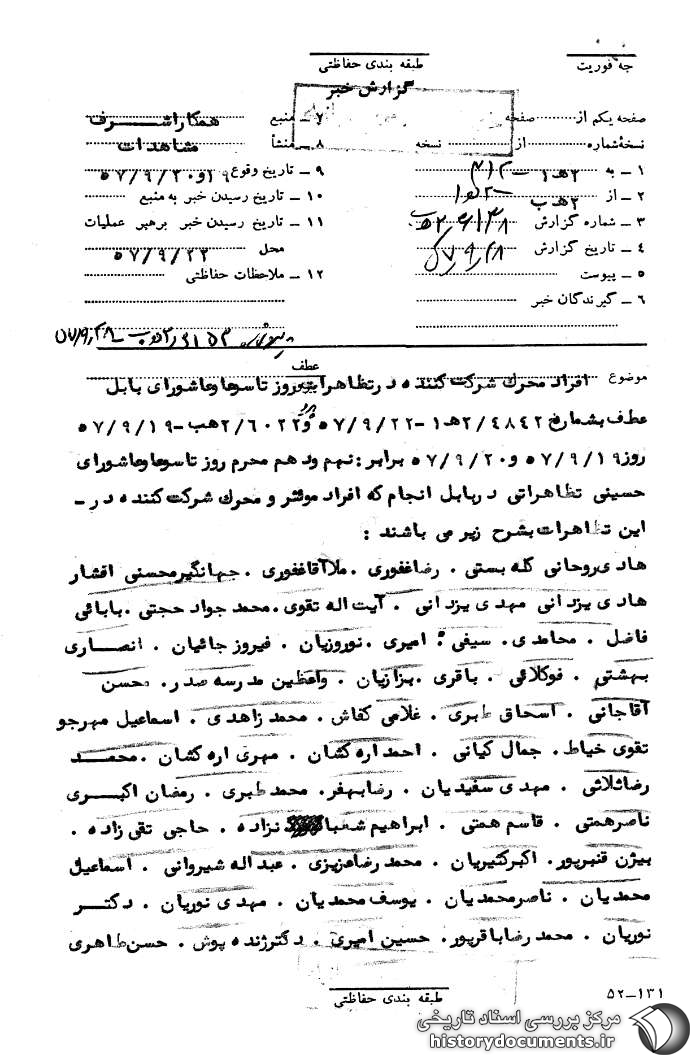 طبقه بندی حفاظتی
جه فوریت
گزارش خبر
صفحه یکم از صفحه
نسخه شماره از نسخه
۱ ـ به ۳۱۲
۲ ـ از ۲هـ ب
۳ ـ شماره گزارش
۴ ـ تاریخ گزارش
۵ ـ پیوست
۶ ـ گیرندگان خبر
۷ ـ منبع همکار اشرف
۸ ـ منشأ مشاهدات
۹ ـ تاریخ وقوع ۱۹و۵۷/۹/۲۰
۱۰ ـ تاریخ رسیدن خبر به منبع
۱۱ ـ تاریخ رسیدن خبر برهبر عملیات
محل ۵۷/۹/۲۲
۱۲ ـ ملاحظات حفاظتی
عطف
موضوع افراد محرك شرکت کننده در تظاهرات روز تاسوعا وعاشورای بابل
عطف بشماره ۲/۴۸۴۲هـ۱-۵۷/۹/۲۲ و ۲/۶۰۲۲هب-۵۷/۹/۱۹
روز ۵۷/۹/۱۹ و ۵۷/۹/۲۰ برابر: نهم ودهم محرم روز تاسوعا وعاشورای
حسینی تظاهراتی دربابل انجام که افراد موثر و محرك شرکت کننده در-
این تظاهرات بشرح زیر می باشند :
هادی روحانی گله بستی . رضاغفوری . ملاآقاغفوری . جهانگیرمحسنی افشار
هادی یزدانی مهدی یزدانی . آیت اله تقوی . محمد جواد حجتی . بابائی
فاضل . محامدی . سیفی : امیری . نوروزیان . فیروز جائیان . انصاری
بهشتی . فوکلائی . باقری . بزازیان . واعظین مدرسه صدر . محسن
آقاجانی . اسحاق طبری . غلامی کفاش . محمد زاهدی . اسماعیل مهرجو
تقوی خیاط . جمال کیانی . احمد اره کشان . مهری اره کشان . محمد
رضاثلاثی . مهدی سفیدیان . رضابهفر . محمد طبری . رمضان اکبری
ناصرهمتی . قاسم همتی . ابراهیم شعبا نزاده . حاجی تقی زاده .
بیژن قنبرپور . اکبرکثیریان . محمد رضاعزیزی . عبداله شیروانی . اسماعیل
محمدیان . ناصرمحمدیان . یوسف محمدیان . مهدی نوریان . دکتر
نوریان . محمد رضاباقرپور . حسین امیری . دکترژنده پوش . حسن طاهری
طبقه بندی حفاظتی
۵۲-۱۳۱
مرکز بررسی اسناد تاریخی
historydocuments.ir